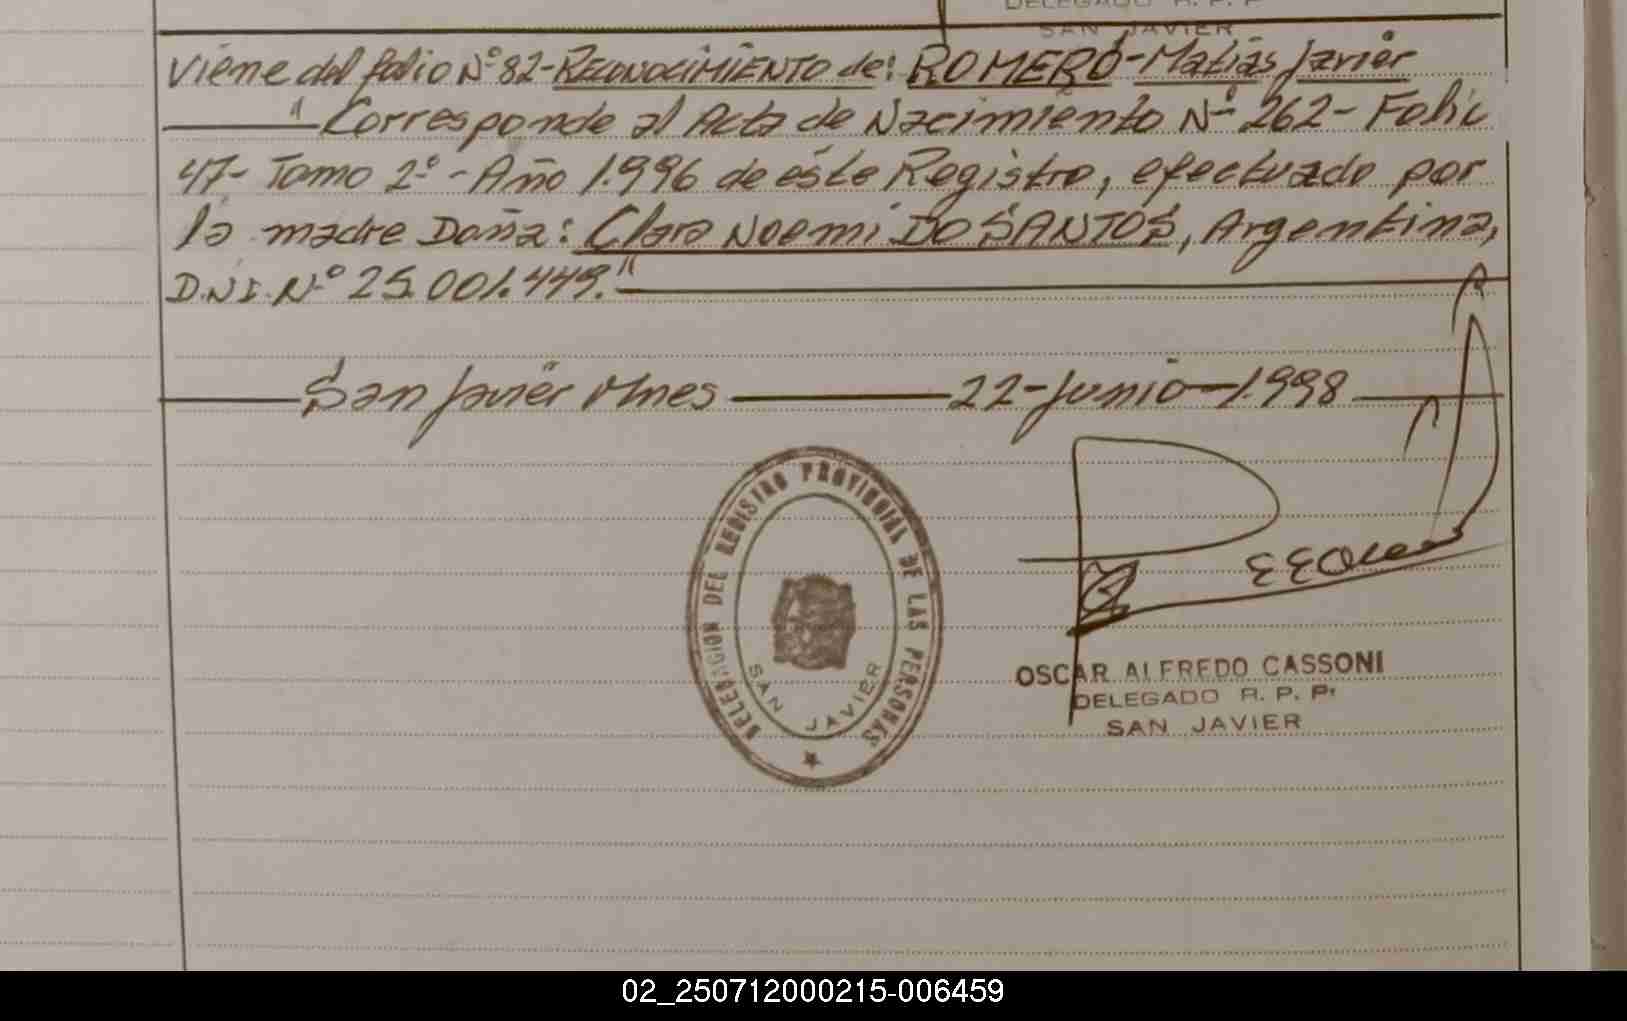 DELEGADO R. P. P
SAN JAVIER
Viene del folio Nº 82-RECONOCIMIENTO de: ROMERO-Matías Javier
" Corresponde al Acta de Nacimiento Nº 262- Folio
47- Tomo 2º - Año 1.996 de éste Registro, efectuado por
la madre Doña: Clara Noemi DO SANTOS, Argentina,
D.N.I. Nº 25.001.449."
San Javier Mnes 22-Junio-1.998
DELEGACION DEL REGISTRO PROVINCIAL DE LAS PERSONAS
SAN JAVIER
OSCAR ALFREDO CASSONI
DELEGADO R. P. P.
SAN JAVIER
02_250712000215-006459